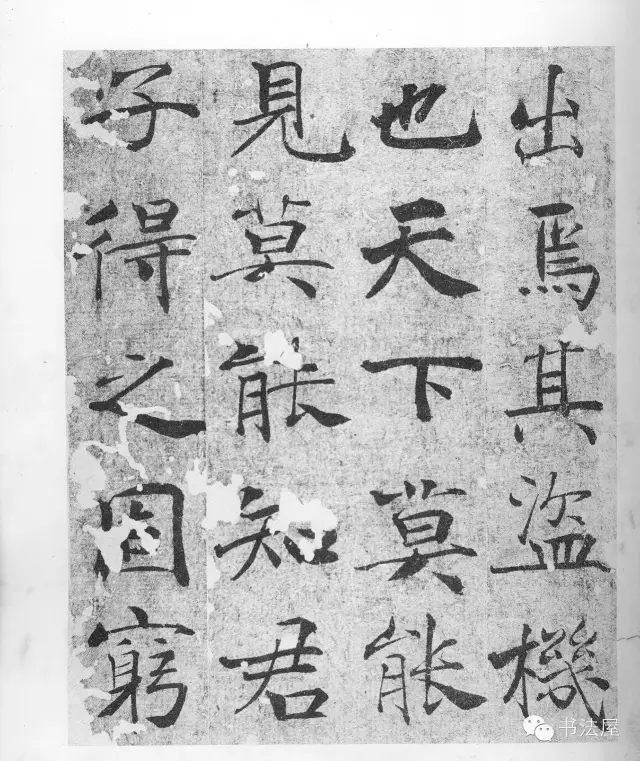 出焉其盜機
也天下莫能
見莫能知君
子得之固窮
书法屋